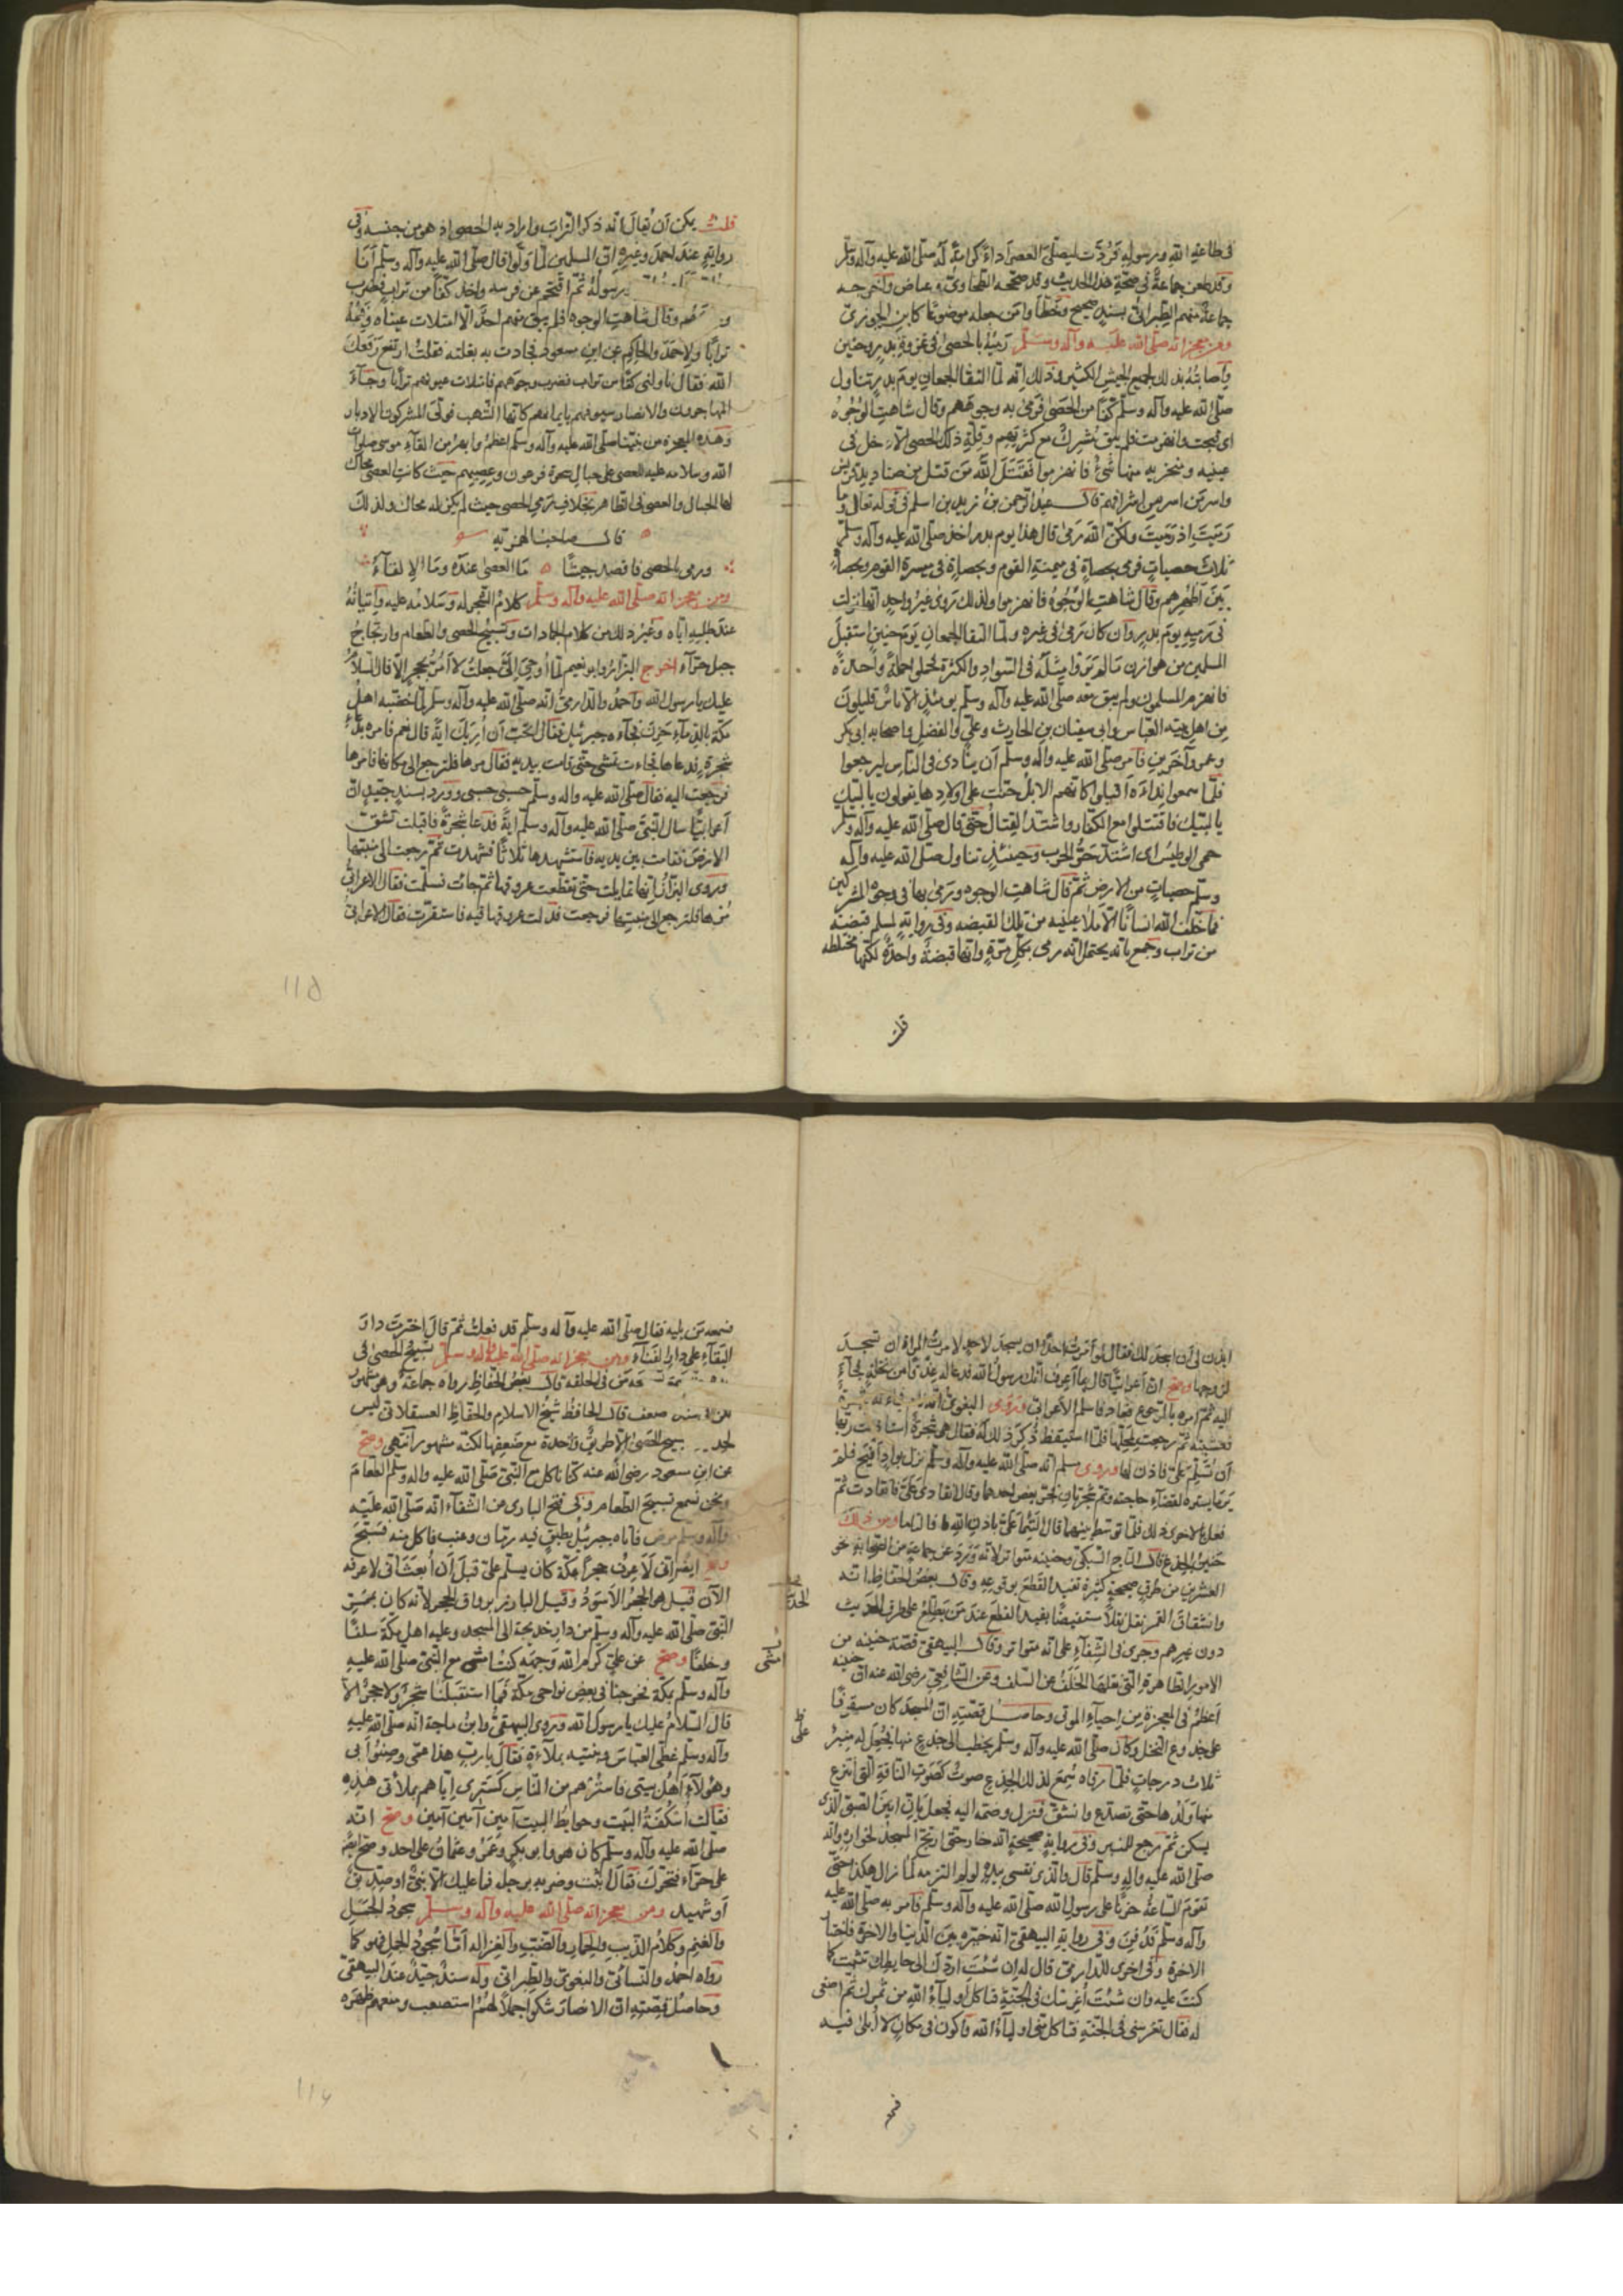 في طاعة الله ورسوله فردّت ليصلّي العصر أداءً كرامةً له صلّى الله عليه وآله وسلّم
وقد طعن جماعةٌ في صحّة هذا الحديث وقد صحّحه الطحاويّ وعياض وأخرجه
جماعةٌ منهم الطبرانيّ بسندٍ صحيح وخطّأوا من جعله موضوعًا كابن الجوزيّ
ومن معجزاته صلّى الله عليه وآله وسلّم رميُهُ بالحصى في غزوة بدرٍ وحنين
وإصابتُهُ بذلك لجميع الجيش الكثير وذلك إنّه لمّا التقا الجمعان يوم بدرٍ تناول
صلّى الله عليه وآله وسلّم كفًّا من الحصى فرمى به وجوههم وقال شاهت الوُجُوهُ
اى قبحت وانهزمت فلم يبق مُشركٌ مع كثرتهم وقلّة ذلك الحصى الاّ دخل في
عينيه ومنخريه منها شيءٌ فانهزموا فقَتَلَ اللّه مَن قتل من صناديد قريش
واسر من اسر من اشرافهم قال عبدُ الرّحمن بنُ زيد بن اسلم في قوله تعالى وما
رَمَيتَ اذ رَمَيتَ ولكنّ اللّه رَمى قال هذا يوم بدر اخذ صلّى الله عليه وآله وسلّم
ثلاث حصياتٍ فرمى بحصاةٍ في ميمنة القوم وبحصاةٍ في ميسرة القوم وبحصاةٍ
بين أظهُرهم وقال شاهت الوُجُوهُ فانهزموا ولذلك رَوى غيرُ واحدٍ انّها نزلت
في رَميِهِ يوم بدرٍ وان كان رَمى في غيره ولمّا التقا الجمعان يَومَ حنينٍ استقبلَ
المسلمين من هوازن مَا لم يَرَوا مِثلَهُ في السّواد والكثرة فحملوا حملةً واحدةً
فانهزم المسلمون ولم يبق معه صلّى الله عليه وآله وسلّم يومئذٍ الاّ ناسٌ قليلون
مِن اهل بيته العبّاس وابي سفيان بن الحارث وعليّ والفضل واصحابه ابي بكر
وعمر وآخَرين فأمر صلّى الله عليه وآله وسلّم أن ينادى في النّاس ليرجعوا
فلّما سمعوا نِداءَهُ اقبلوا كانّهم الابل حنّت على اولادها يقولون يا لبّيك
يا لبّيك فاقتتلوا مع الكفّار واشتدّ القِتالُ حتّى قال صلّى الله عليه وآله وسلّم
حمى الوطيسُ اى اشتدّ حرُّ الحرب وحينئذٍ تناول صلّى الله عليه وآله
وسلّم حصياتٍ من الارض ثمّ قال شاهت الوجوه ورَمى بها في وجوه المشركين
فما خلق الله انسانًا الاّ مَلأ عينيه من تلك القبضه وفي روايةٍ لمسلم قبضة
من تراب وجُمع بانّه يحتمل انّه رمى بكلٍّ مرّةٍ وانّها قبضةٌ واحدةٌ لكنّها مختلطه
قلت
قلت يمكن أن يُقال انّه ذكر التراب واراد به الحصى اذ هو من جنسه وفي
روايةٍ عند احمدَ وغيرِهِ انّ المسلمين لمّا ولّوا قال صلّى الله عليه وآله وسلّم أنَا
ورسولُهُ ثمّ اقتحم عن فرسه واخذ كفًّا من ترابٍ فضرب
وقال شاهت الوجوه فلم يبق منهم احدٌ الاّ امتلات عيناه وفمُهُ
ترابًا ولاحمدَ والحاكم عن ابن مسعود فحادت به بغلته فقلتُ ارتفع رَفَعَكَ
الله فقال ناولنى كفًّا من تراب فضرب وجوههم فامتلات عيونهم ترابًا وجآءَ
المهاجرون والانصار سيوفهم بايمانهم كانّها الشّهب فولّى المشركون الادبار
وهذه المعجزة من نبيّنا صلّى الله عليه وآله وسلّم اعظمُ وابهرُ من القآءِ موسى صلوات
الله وسلامه عليه العصى على حبال سحرة فرعون وعِصِيِّهم حيث كانت العصى تحاك
لها الحبال والعصى في الظاهر بخلاف رمي الحصى حيث لم يكن له محاك ولذلك
قال صاحبُ الهمزيّه
ورمى بالحصى فاقصد جيشًا مَا العصى عندَهُ ومَا الإلقآءُ
ومن معجزاته صلّى الله عليه وآله وسلّم كلامُ الشّجر له وسَلامُه عليه وإتيانُهُ
عند طلبه ايّاه وغيرُ ذلك من كلام الجمادات وتسبيحُ الحصى والطّعام وارتجاجُ
جبل حرآء اخرج البزّارُ وابو نعيم لمّا أُوحِيَ إليّ جعلتُ لا أمُرُّ بحجرٍ الاّ قال السّلامُ
عليك يا رسول الله واحمدُ والدارميّ انّه صلّى الله عليه وآله وسلّم لمّا خضّبه اهلُ
مكّة بالدّمآء حَزِنَ فجآءه جبرئيل فقال اتحبّ أن أُرِيَكَ ايةً قال نعم فامره بدعآءِ
شجرةٍ فدعاها فجاءت تمشى حتّى قامت بين يديه فقال مرها فلترجع الى مكانها فامرها
فرجعت اليه فقال صلّى الله عليه وآله وسلّم حسبى حسبى وورد بسندٍ جيّدٍ انّ
أعرابيًّا سال النّبيّ صلّى الله عليه وآله وسلّم ايةً فدعا شجرةً فاقبلت تشقّ
الارضَ فقامت بين يديه فاستشهدها ثلاثًا فشهدت ثمّ رجعت الى منبتها
وروى البزّارُ انّها تمايلت حتّى تقطّعت عروقها ثمّ جاءت فسلّمت فقال الاعرابيُّ
مُرها فلترجع الى منبتها فرجعت فدلّت عروقها فيه فاستقرّت فقال الاعرابيُّ
115
ايذن لى أن اسجدَ لك فقال لو أمَرتُ احدًا ان يسجدَ لاحدٍ لامرتُ المراة ان تسجدَ
لزوجها وصحّ انّ أعرابيًّا قال بما أعرِفُ انّك رسولُ الله فدعا له عِذقًا من نخلةٍ فجآءَ
اليه ثمّ امره بالرّجوع فعاد فاسلم الأعرابى وروى البغوىّ شجرةً
فغشيته ثمّ رجعت لمحلّها فلمّا استيقظ ذُكِرَ ذلك لَهُ فقال هى شجرةٌ استأذنت ربّها
أن تُسَلِّمَ عليّ فاذن لها وروى مسلم انّه صلّى الله عليه وآله وسلّم نزل بوادٍ أفيَح فلم
يَرَ ما يستره لقضآءِ حاجته وثمّ شجرتان فاخذ بغصن احدهما وقال انقادى عَلَيّ فانقادت ثمّ
فعل بالاخرى ذلك فلمّا توسّط بينهما قال التئما عليّ باذن الله فالتأما ومن ذلك
حنينُ الجذع قال التاج السّبكى وحنينه متواتر لانّه وَرَدَ عن جماعةٍ من الصّحابة نحو
العشرين من طرقٍ صحيحةٍ كثيرةٍ تفيد القَطعَ بوقوعه وقال بعضُ الحفّاظ انّه
وانشقاقَ القمر نقل نقلاً مستفيضًا يفيد القطعَ عند مَن يطّلع على طرق الحديث
دون غيرهم وجرى فى الشّفآءِ على انّه متواتر وقال البيهقى قصّة حنينه من
الامور الظاهرة الّتى نقلها الخَلَفُ عن السّلف وعن الشّافعيّ رضى الله عنه انّ حنينه
أعظمُ فى المعجزة من إحيآءِ الموتى وحاصل قصّته انّ المسجد كان مسقوفًا
على جذوع النّخل وكان صلّى الله عليه وآله وسلّم يخطب الى جذعٍ منها فجُعِلَ له منبرٌ
ثلاث درجاتٍ فلمّا رقاه سُمِعَ لذلك الجذع صوتٌ كصَوتِ النّاقة الّتى انتزع
منها ولدها حتّى تصدّع وانشقّ فنزل وضمّه اليه فجعل يأنّ انينَ الصّبيّ الّذى
يسكن ثمّ رجع للمنبر وفى روايةٍ صحيحةٍ انّه خار حتّى ارتجّ المسجدُ لخواره وانّه
صلّى الله عليه وآله وسلّم قال والّذى نفسى بيده لو لم التزمه لما زال هكذا حتّى
تقومَ السّاعةُ حزنًا على رسول الله صلّى الله عليه وآله وسلّم فأمر به صلّى الله عليه
وآله وسلّم فدُفِنَ وفى رواية البيهقى انّه خيّره بين الدّنيا والاخرة فاختار
الاخرة وفى اخرى للدّارمىّ قال له إن شئتَ اردّك الى حايطك تنبت كما
كنت عليه وان شئتَ أغرِسك فى الجنّة فياكل أوليآءُ الله من ثمرك ثم اصغى
له فقال تغرسنى فى الجنّة فياكل منّى اوليآءُ الله وأكون فى مكانٍ لا أَبلى فيه
فسمعه
فسمعه مَن يليه فقال صلّى الله عليه وآله وسلّم قد فعلتُ ثمّ قال اختَرتَ دارَ
البقآءِ على دار الفنآءِ ومن معجزاته صلّى الله عليه وآله وسلّم تسبيحُ الحصى فى
مَن فى الحلقه قال بعضُ الحفّاظِ رواه جماعةٌ وهو مشهورٌ
ضعف قال الحافظُ شيخُ الاسلام والحفّاظِ العسقلانى ليس
الحصى الاّ طريقٌ واحدة مع ضَعفِها لكنّه مشهور انتهى وصحّ
عن ابن مسعود رضى الله عنه كنّا ناكل مع النّبيّ صلّى الله عليه وآله وسلّم الطّعامَ
ونحن نسمع تسبيحَ الطّعام وفى فتح البارى عن الشّفآء انّه صلّى الله عليه
وآله وسلّم مرض فاتاه جبرئيلُ بطبقٍ فيه رمّان وعنب فاكل منه فسبّحَ
انّى لَأعرِفُ حجرًا بمكّة كان يسلّم عليّ قبل أن أُبعَثَ انّى لاعرفه
الآن قيل هو الحجرُ الأسودُ وقيل البارز بزقاق الحجر لانّه كان بممرّ
النّبيّ صلّى الله عليه وآله وسلّم من دار خديجة الى المسجد وعليه اهل مكّة سلفًا
وخلفًا وصحّ عن عليّ كرّم الله وَجهَهُ كنتُ امشى مع النّبيّ صلّى الله عليه
وآله وسلّم بمكّة فخرجنا فى بعض نواحى مكّة فما استقبلنا شجرٌ ولا حجرٌ الاّ
قال السّلامُ عليك يا رسول الله وروى البيهقىُّ وابنُ ماجة انّه صلّى الله عليه
وآله وسلّم غطّى العبّاسَ وبنيه بملآءةٍ فقال يا ربّ هذا عمّى وصنوُ أبى
وهؤلآءِ أهل بيتى فاسترهم من النّار كسترى إيّاهم بملأتى هذه
فقالت اُسكُفَّةُ البيت وحوايط البيت آمين آمين آمين وصحّ انّه
صلّى الله عليه وآله وسلّم كان هو وابو بكرٍ وعُمَرُ وعثمانُ على احدٍ
على حرآء فتحرّك فقال اثبت وضربه برجله فما عليك الاّ نبىٌّ او صدّيقٌ
أو شهيد ومن معجزاته صلّى الله عليه وآله وسلّم سجودُ الجمل
والغنم وكلامُ الذّيب والحمار والضّبّ والغزاله أمّا سُجودُ الجمل فهو كما
رواه احمدُ والنّسائىّ والبغوىّ والطّبرانى وله سندٌ جيّدٌ عند البيهقىّ
وحاصل قصّته انّ الانصار شكوا جملاً لهم استصعب ومنعهم ظهره
116